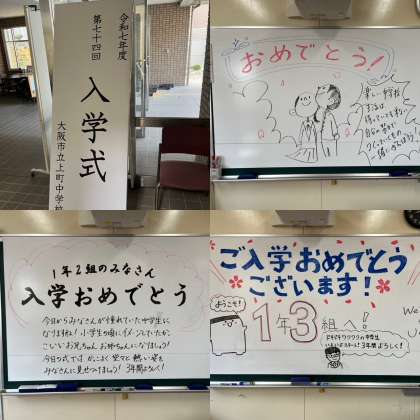 令和七年度
第七十四回
入学式
大阪市立上町中学校
おめでとう!
1年2組のみなさん
入学おめでとう
今日からみなさんが憧れていた中学生に
なりますね!小学生の頃にイメージしていたかっ
こいいお兄ちゃん お姉ちゃんになりましょう!
今日の式では、かっこよく 堂々と 熱い姿を
みなさんに見せつけましょう! 3年間よろしく!
ご入学おめでとう
ございます!
ようこそ!
1年3組へ!
We
ドキドキワクワクの中学生
3年間よろしく!